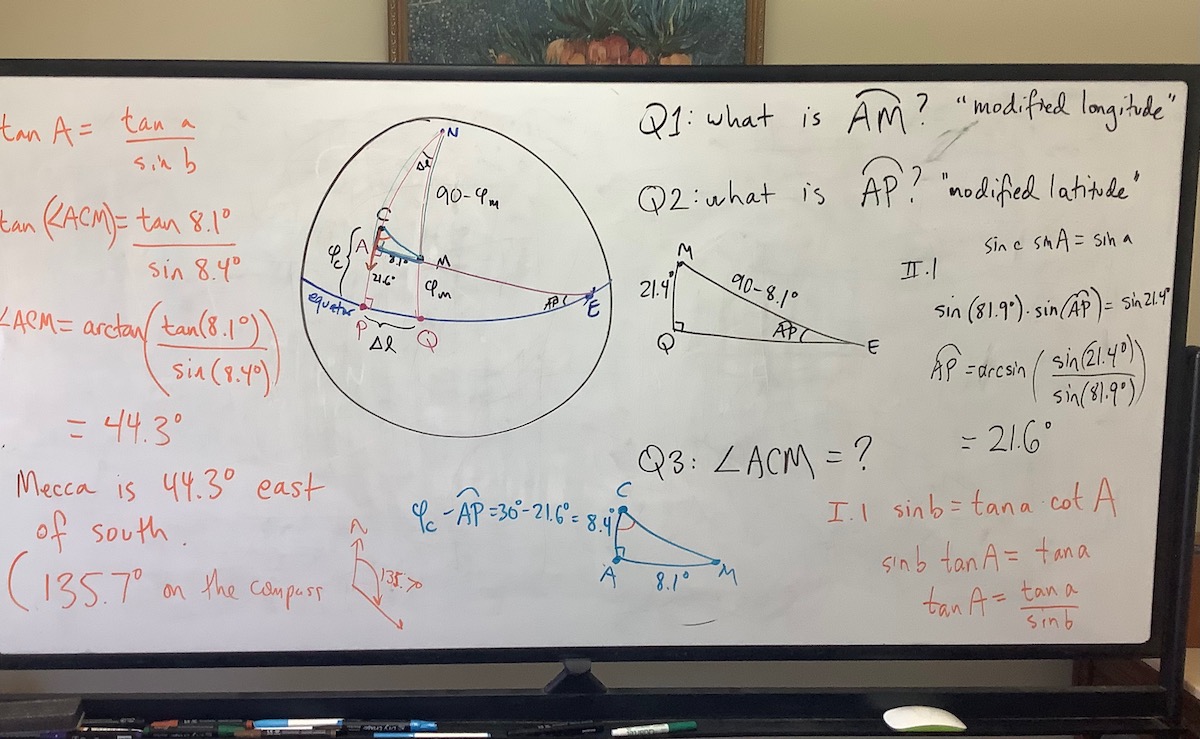 tan A = tan a / sin b
tan (∠ACM) = tan 8.1° / sin 8.4°
∠ACM = arctan( tan(8.1°) / sin(8.4°) )
= 44.3°
Mecca is 44.3° east
of south.
(135.7° on the compass
N
135.7°
N
Δl
90-φm
C
φc
A
8.1°
M
21.6°
φm
equator
P
Δl
Q
AP
E
Q1: what is AM? "modified longitude"
Q2: what is AP? "modified latitude"
M
21.4°
90-8.1°
Q
AP
E
sin c sin A = sin a
II.1
sin (81.9°) · sin(AP) = sin 21.4°
AP = arcsin ( sin(21.4°) / sin(81.9°) )
= 21.6°
Q3: ∠ACM = ?
φc - AP = 30° - 21.6° = 8.4°
C
A
8.1°
M
I.1 sin b = tan a · cot A
sin b tan A = tan a
tan A = tan a / sin b